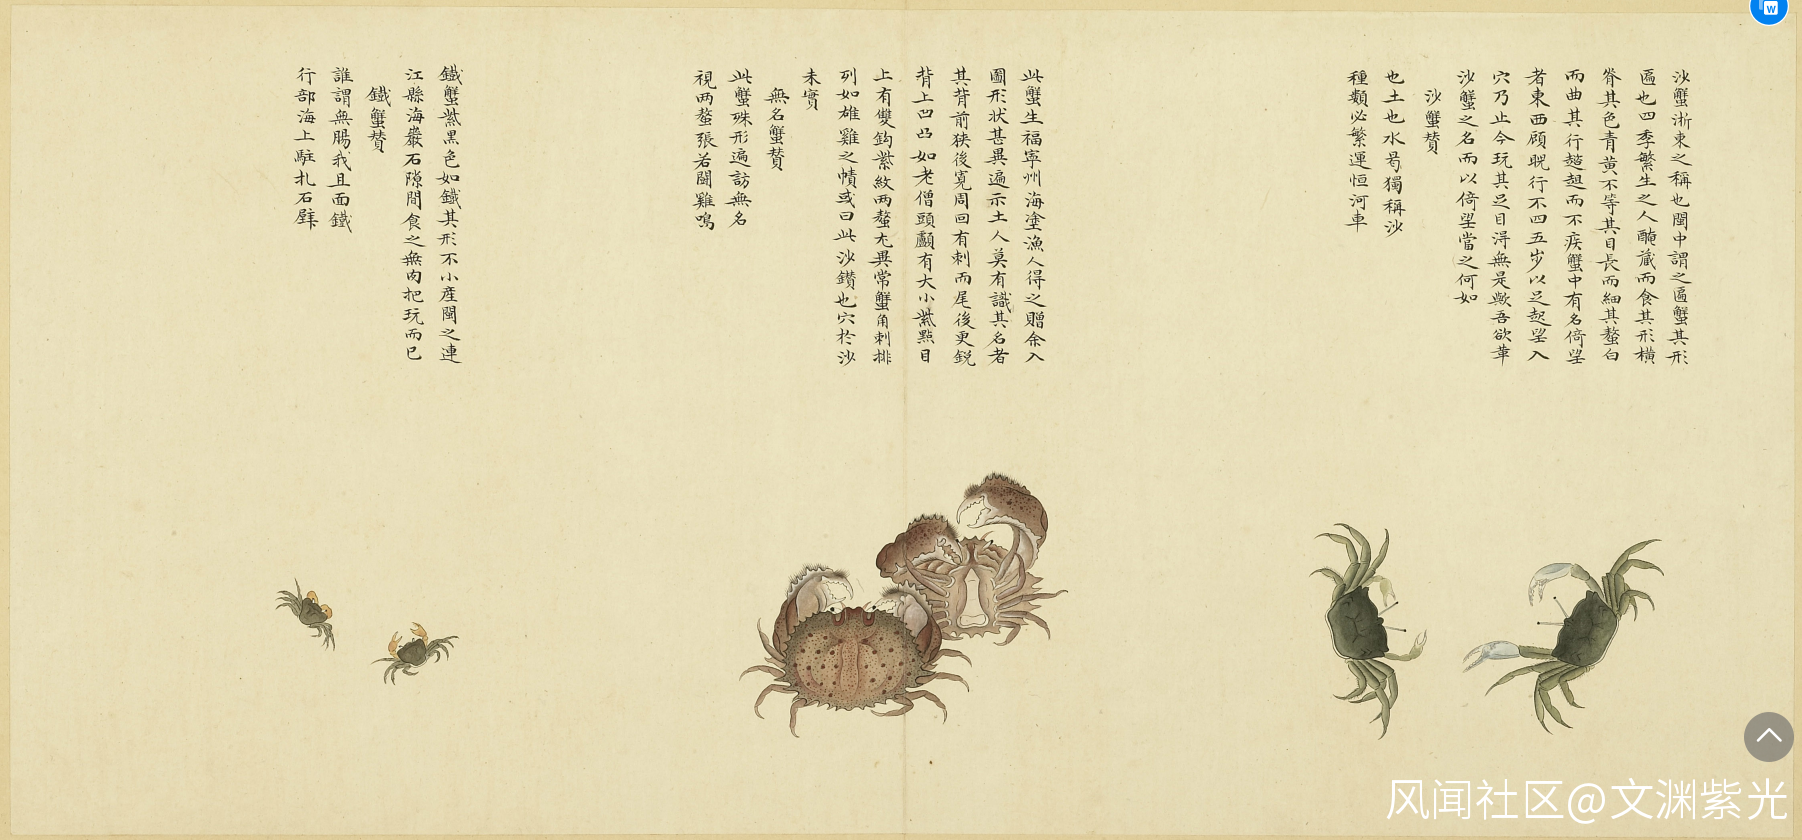 沙蟹浙東之稱也閩中謂之匾蟹其形
匾也四季繁生之人醃藏而食其形橫
脊其色青黃不等其目長而細其螯白
而曲其行趦趄而不疾蟹中有名倚望
者東西顧睨行不四五步以足起望入
穴乃止今玩其足目得無是歟吾欲華
沙蟹之名而以倚望當之何如
沙蟹贊
也土也水蜀獨稱沙
種類必繁運恒河車
此蟹生福寧州海塗漁人得之贈余入
圖形狀甚異遍示土人莫有識其名者
其背前狹後寬周回有刺而尾後更銳
背上凹凸如老僧頭顱有大小紫點目
上有雙鈎紫紋兩螯尤異常蟹角刺排
列如雄雞之幘或曰此沙鑽也穴於沙
未實
無名蟹贊
此蟹殊形遍訪無名
視兩螯張若鬪雞鳴
鐵蟹紫黑色如鐵其形不小產閩之連
江縣海巖石隙間食之無肉把玩而已
鐵蟹贊
誰謂無腸我且面鐵
行部海上駐札石壁
风闻社区@文渊紫光